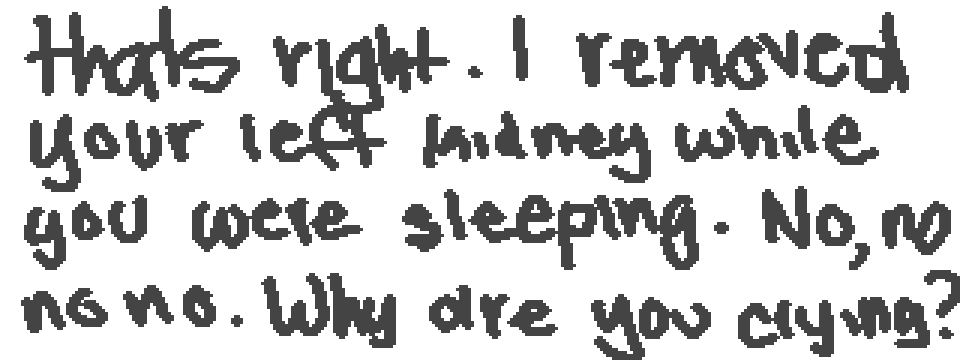 thats right. I removed
your left kidney while
you were sleeping. No, no
no no. Why are you crying?